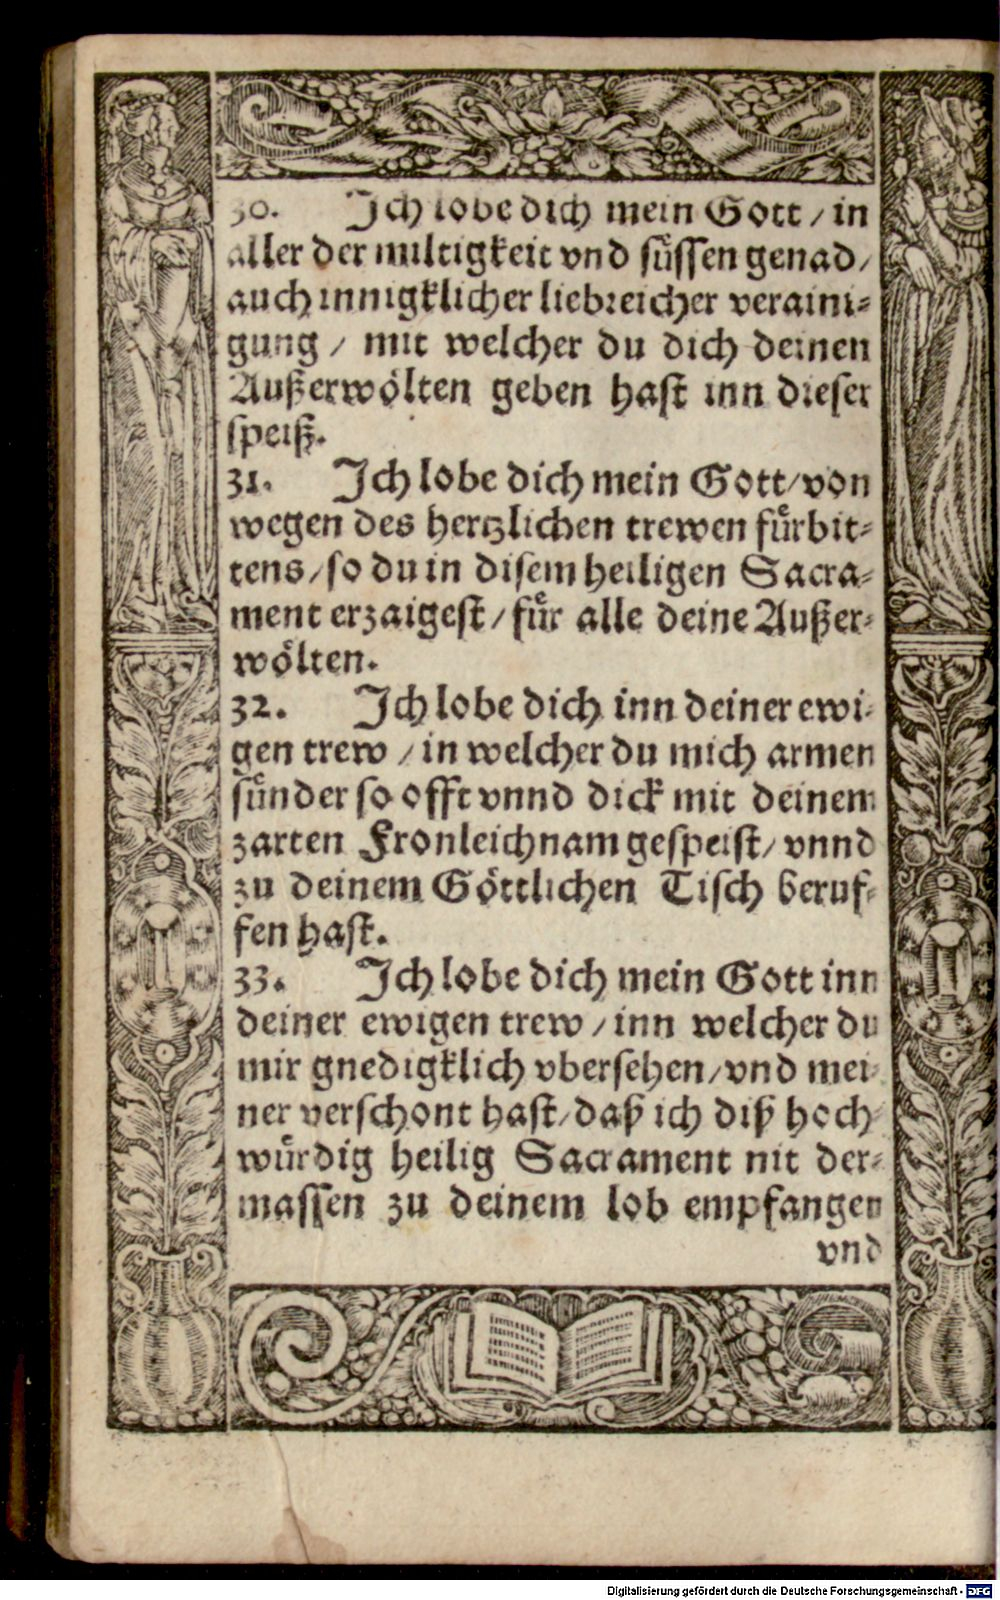 30. Ich lobe dich mein Gott / in
aller der miltigkeit vnd süssen genad /
auch innigklicher liebreicher veraini-
gung / mit welcher du dich deinen
Außerwölten geben hast inn dieser
speiß.
31. Ich lobe dich mein Gott / von
wegen des hertzlichen trewen fürbit-
tens / so du in disem heiligen Sacra-
ment erzaigest / für alle deine Außer-
wölten.
32. Ich lobe dich inn deiner ewi-
gen trew / in welcher du mich armen
sünder so offt vnnd dick mit deinem
zarten Fronleichnam gespeist / vnnd
zu deinem Göttlichen Tisch beruf-
fen hast.
33. Ich lobe dich mein Gott inn
deiner ewigen trew / inn welcher du
mir gnedigklich vbersehen / vnd mei-
ner verschont hast / daß ich diß hoch-
würdig heilig Sacrament nit der-
massen zu deinem lob empfangen
vnd
Digitalisierung gefördert durch die Deutsche Forschungsgemeinschaft - DFG